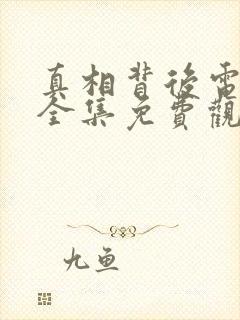 真相背後電
全集免費觀
九鱼